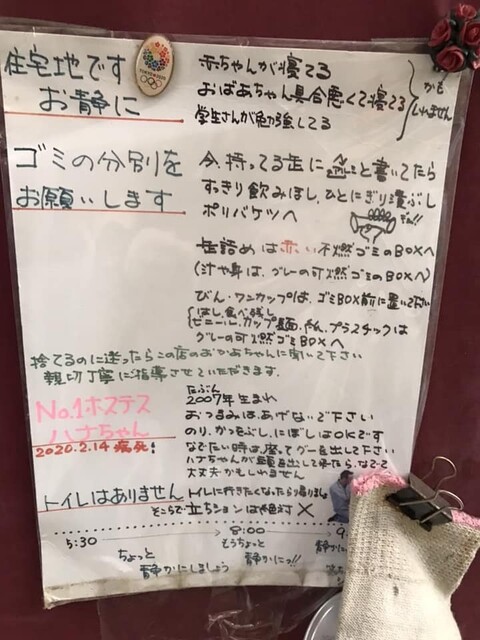 住宅地です
お静に
TOKYO 2020
赤ちゃんが寝てる
おばあちゃん具合悪くて寝てる
学生さんが勉強してる
かも
しれません
ゴミの分別を
お願いします
今、持ってる缶に と書いてたら
すっきり飲みほし、ひとにぎり潰ぶし
ポリバケツへ
缶詰めは赤い不燃ゴミのBOXへ
(汁や身は、グレーの可燃ゴミのBOXへ)
びん・ワンカップは、ゴミBOX前に置いて下さい
はし、食べ残し
ビニール、カップ麺、 プラスチックは
グレーの可燃ゴミBOXへ
捨てるのに迷ったらこの店のおかあちゃんに聞いて下さい
親切丁寧にご指導させていただきます。
No.1ホステス
ハナちゃん
2020.2.14 病死!
たぶん
2007年生まれ
おつまみは、あげないで下さい
のり、かつおぶし、にぼしはOKです
なでたい時は、座ってグーを出して下さい
ハナちゃんが頭を出して来たら、なでて
大丈夫かもしれません
トイレはありません
トイレに行きたくなったら帰りましょ
そこらで立ちションは絶対 ×
5:30
8:00
9
ちょっと
静かにしましょう
そうちょっと
静かにっ!!
静かに